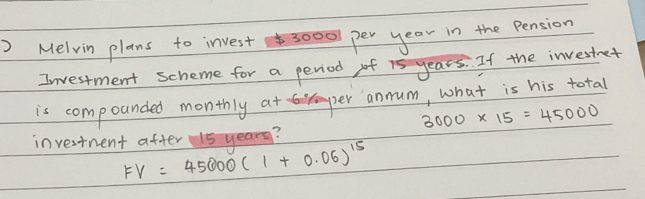 ) Melvin plans to invest $3000 per year in the Pension
Investment Scheme for a period of 15 years. If the investnet
is compounded monthly at 6% per annum, what is his total
investment after 15 years?
3000 x 15 = 45000
FV = 45000 ( 1 + 0.06)^15